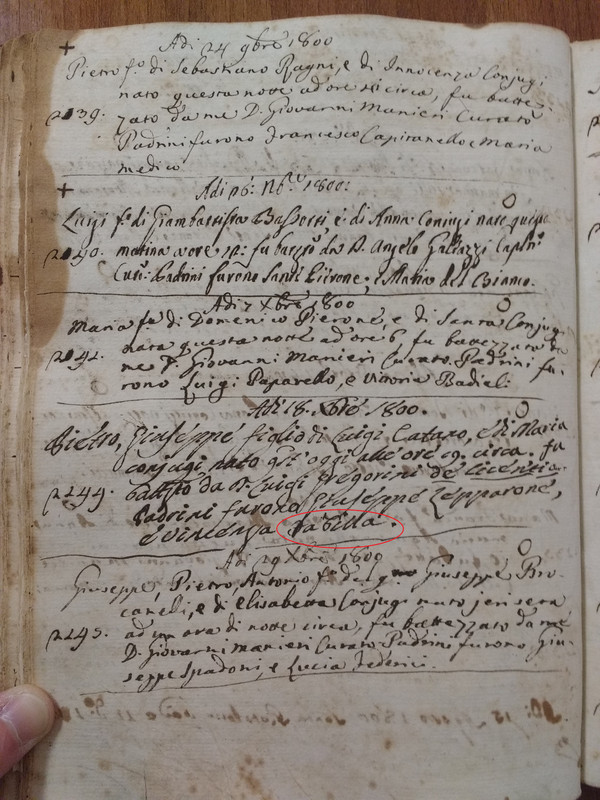 Adi 24 9bre 1800
Pietro fo. di Sebastiano Ragni, e di Innocenza Conjugi
nato questa notte ad ore sei circa, fu batte-
2239. zato da me D. Giovanni Manieri Curato
Padrini furono Francesco Capitanello e Maria
medico
Adi 16: Nbre 1800:
Luigi fo. di Giambattista Bassotti e di Anna Coniugi nato questa
2240. matina a ore fu batto. da D. Angelo Galtazzi
Padrini furono e Maria del Bianco.
Adi 7 Xbre 1800
Maria fa. di Domenico Pierone, e di Santa Conjugi
nata questa notte ad ore 6, fu battezzata da
2242. me D. Giovanni Manieri Curato. Padrini fu-
rono Luigi Paparello, e Vittoria Badiali.
Adi 18. Xbre 1800.
Pietro, Giuseppe figlio di Luigi Cataro, e di Maria
conjugi, nato oggi alle ore 19. circa. fu
2244. batto. da D. Luigi Gregorini de licentia.
Padrini furono Giuseppe Zepparone,
e Vincenza
Adi 29 Xbre 1800
Giuseppe, Pietro, Antonio fo. del Giuseppe Bro-
caneli, e di Elisabetta Conjugi nato jeri sera
2245. ad un ora di notte circa, fu battezzato da me
D. Giovanni Manieri Curato Padrini furono Giu-
seppe Spadoni, e Lucia Federici.